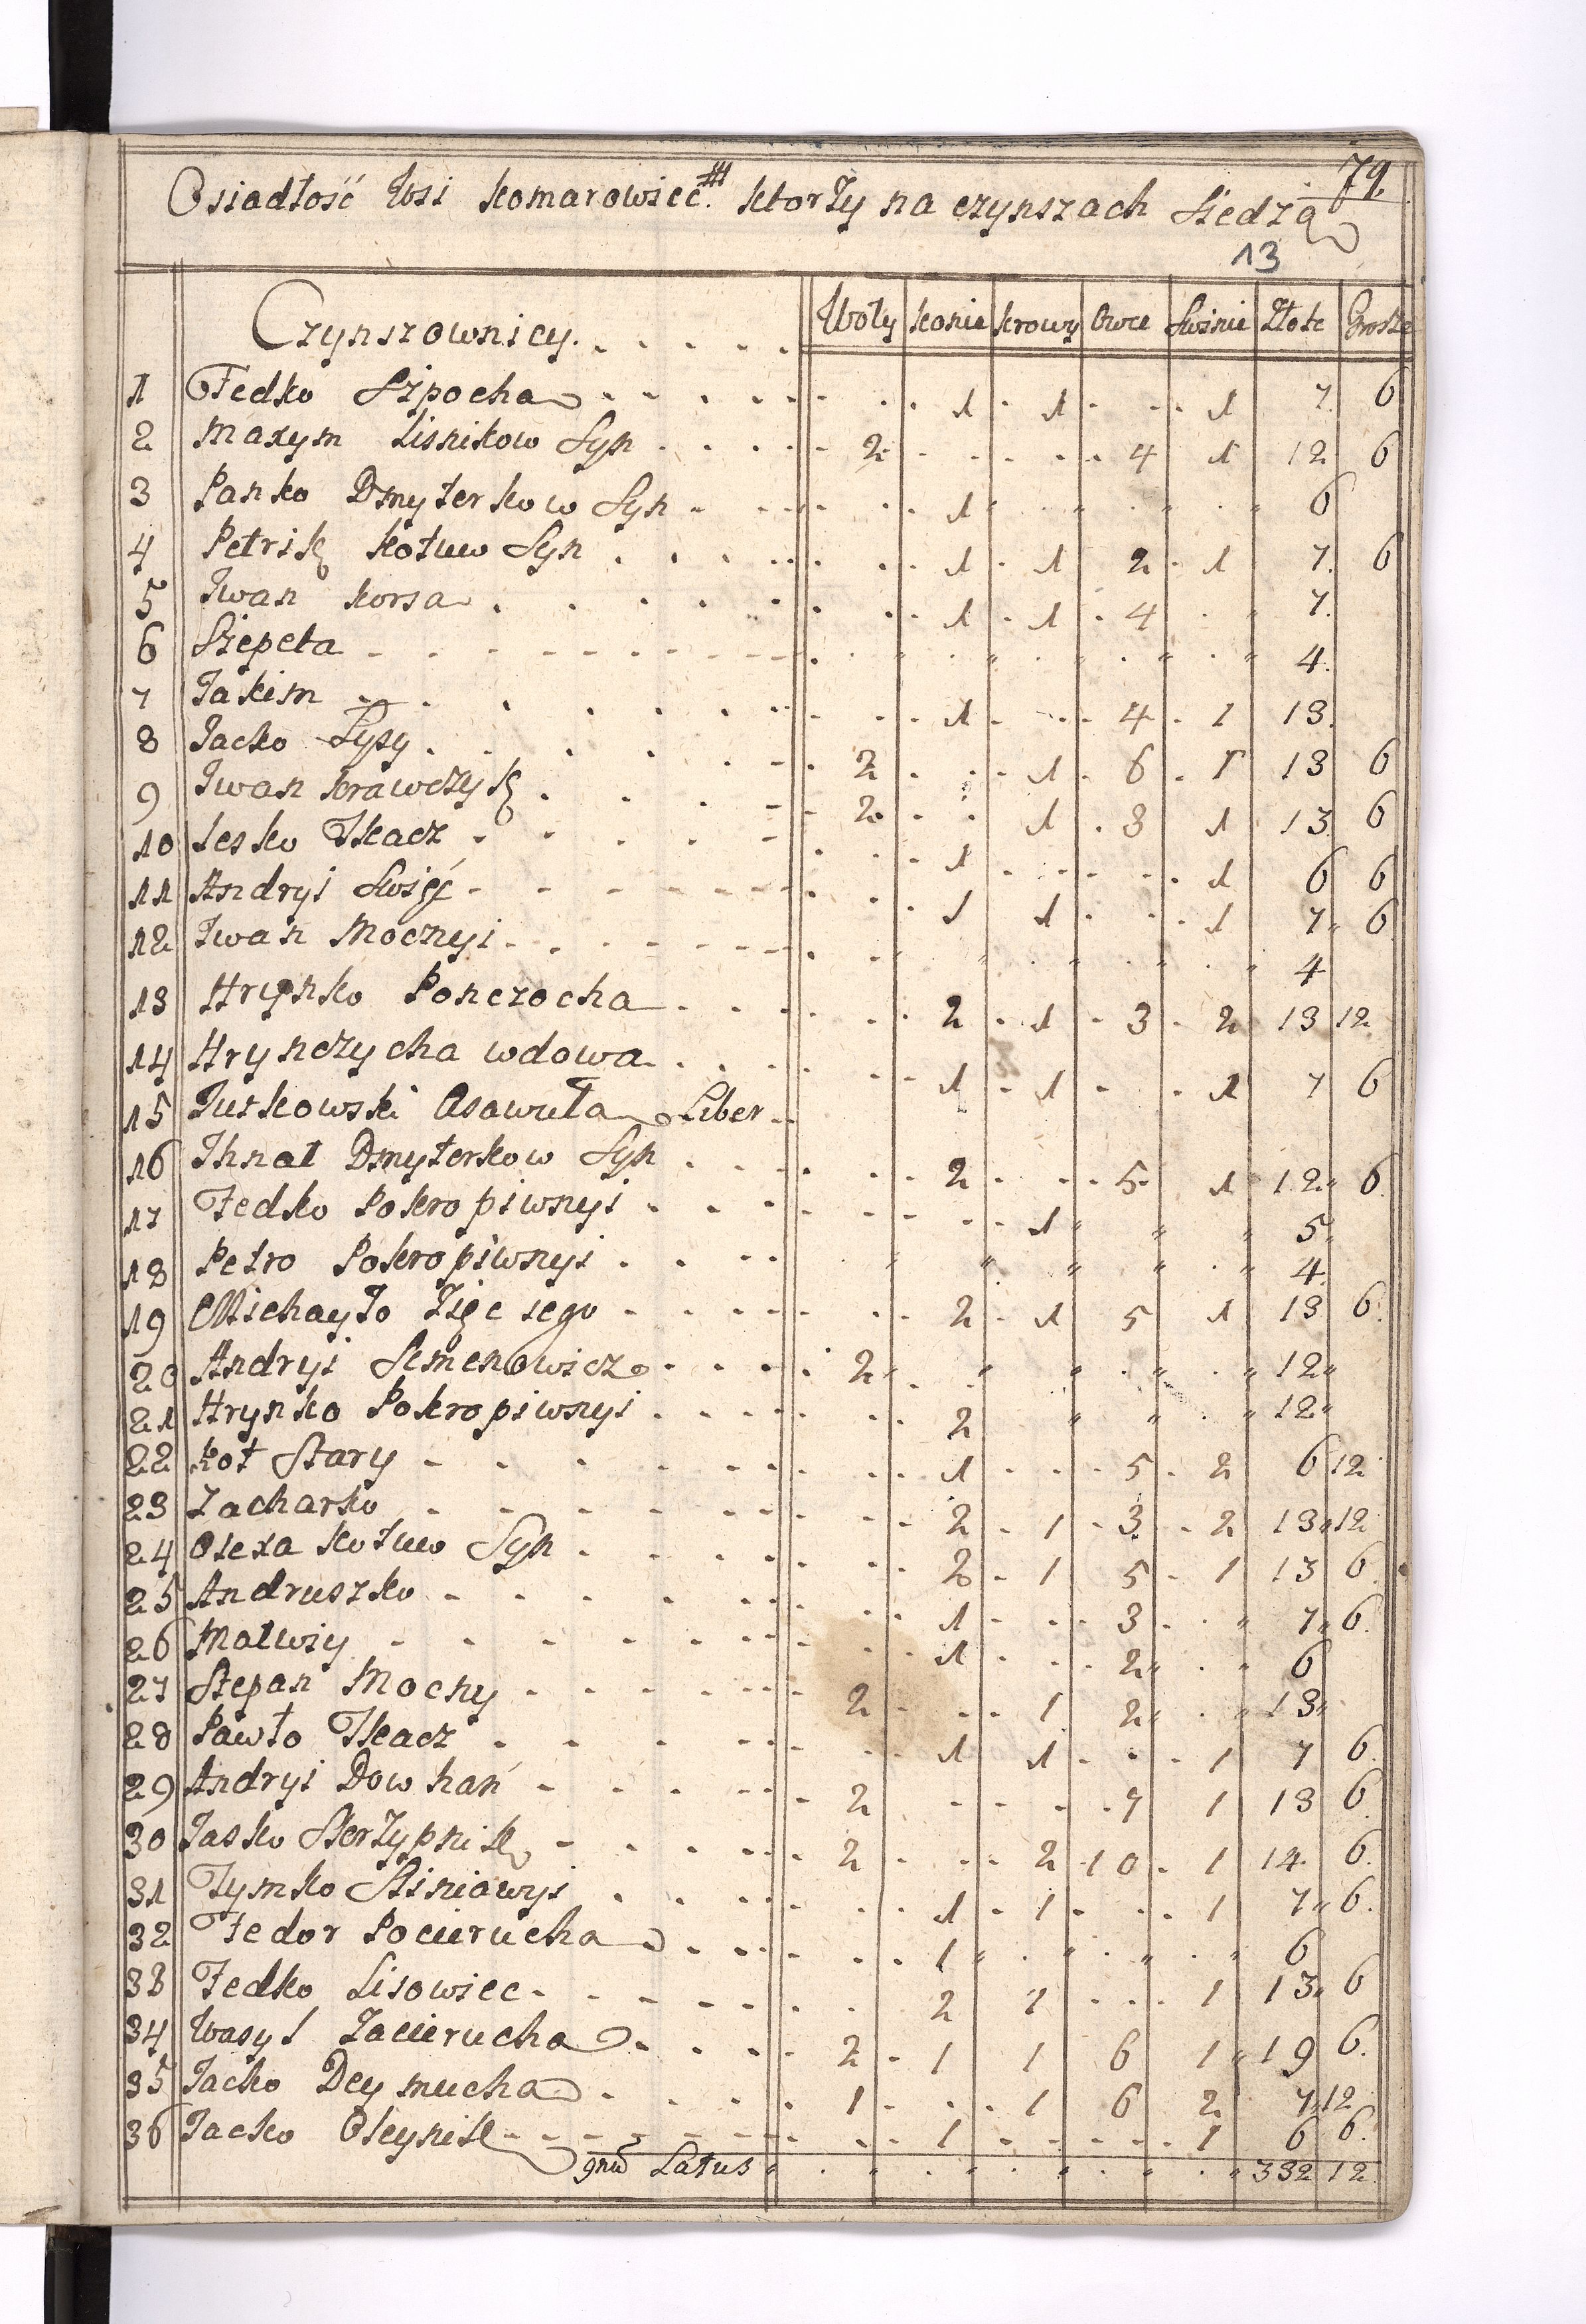 79.
Osiadłość Wsi Komarowiec. ktorzy na czynszach Siedzą
13
Czynszownicy. Woły Konie Krowy Owce Swinie Złote Grosze
1 Fedko Szpocha 1 1 1 7. 6
2 Maxym Lisnikow Syn 2 4 1 12 6
3 Panko Dmyterkow Syn 1 6
4 Petrik Kotuw Syn 1 1 2 1 7. 6
5 Iwan Korsa 1 1 4 7.
6 Szepeta 4.
7 Jakim 1 4 1 13.
8 Jacko Łysy 2 1 6 1 13 6
9 Iwan Krawczyk 2 1 3 1 13 6
10 Lesko Tkacz 1 1 6 6
11 Andryi Swięć 1 1 1 7 6
12 Iwan Mocznyi 4
13 Hrynko Ponczocha 2 1 3 2 13 12
14 Hrynczycha wdowa 1 1 1 7 6
15 Juskowski Asawuła Liber
16 Ihnat Dmyterkow Syn 2 5 1 12 6
17 Fedko Pokropiwnyi 1 5
18 Petro Pokropiwnyi 4
19 Michayło Zięc iego 2 1 5 1 13 6
20 Andryi Semenowicz 2 12
21 Hrynko Pokropiwnyi 2 12
22 Kot Stary 1 5 2 6 12
23 Zacharko 2 1 3 2 13 12
24 Olexa Kotuw Syn 2 1 5 1 13 6
25 Andruszko 1 3 7 6
26 Matwiy 1 2 6
27 Stepan Mocny 2 1 2 13
28 Pawło Tkacz 1 1 1 7 6
29 Andryi Dowhań 2 9 1 13 6
30 Jasko Skrzypnik 2 2 10 1 14 6
31 Tymko Siniawyi 1 1 1 7 6
32 Fedor Pocierucha 1 6
33 Fedko Lisowiec 2 1 1 13 6
34 Wasyl Zacierucha 2 1 1 6 1 19 6
35 Jacko Deymucha 1 1 6 2 7 12
36 Jacko Oleynik 1 1 6 6
Latus 332 12